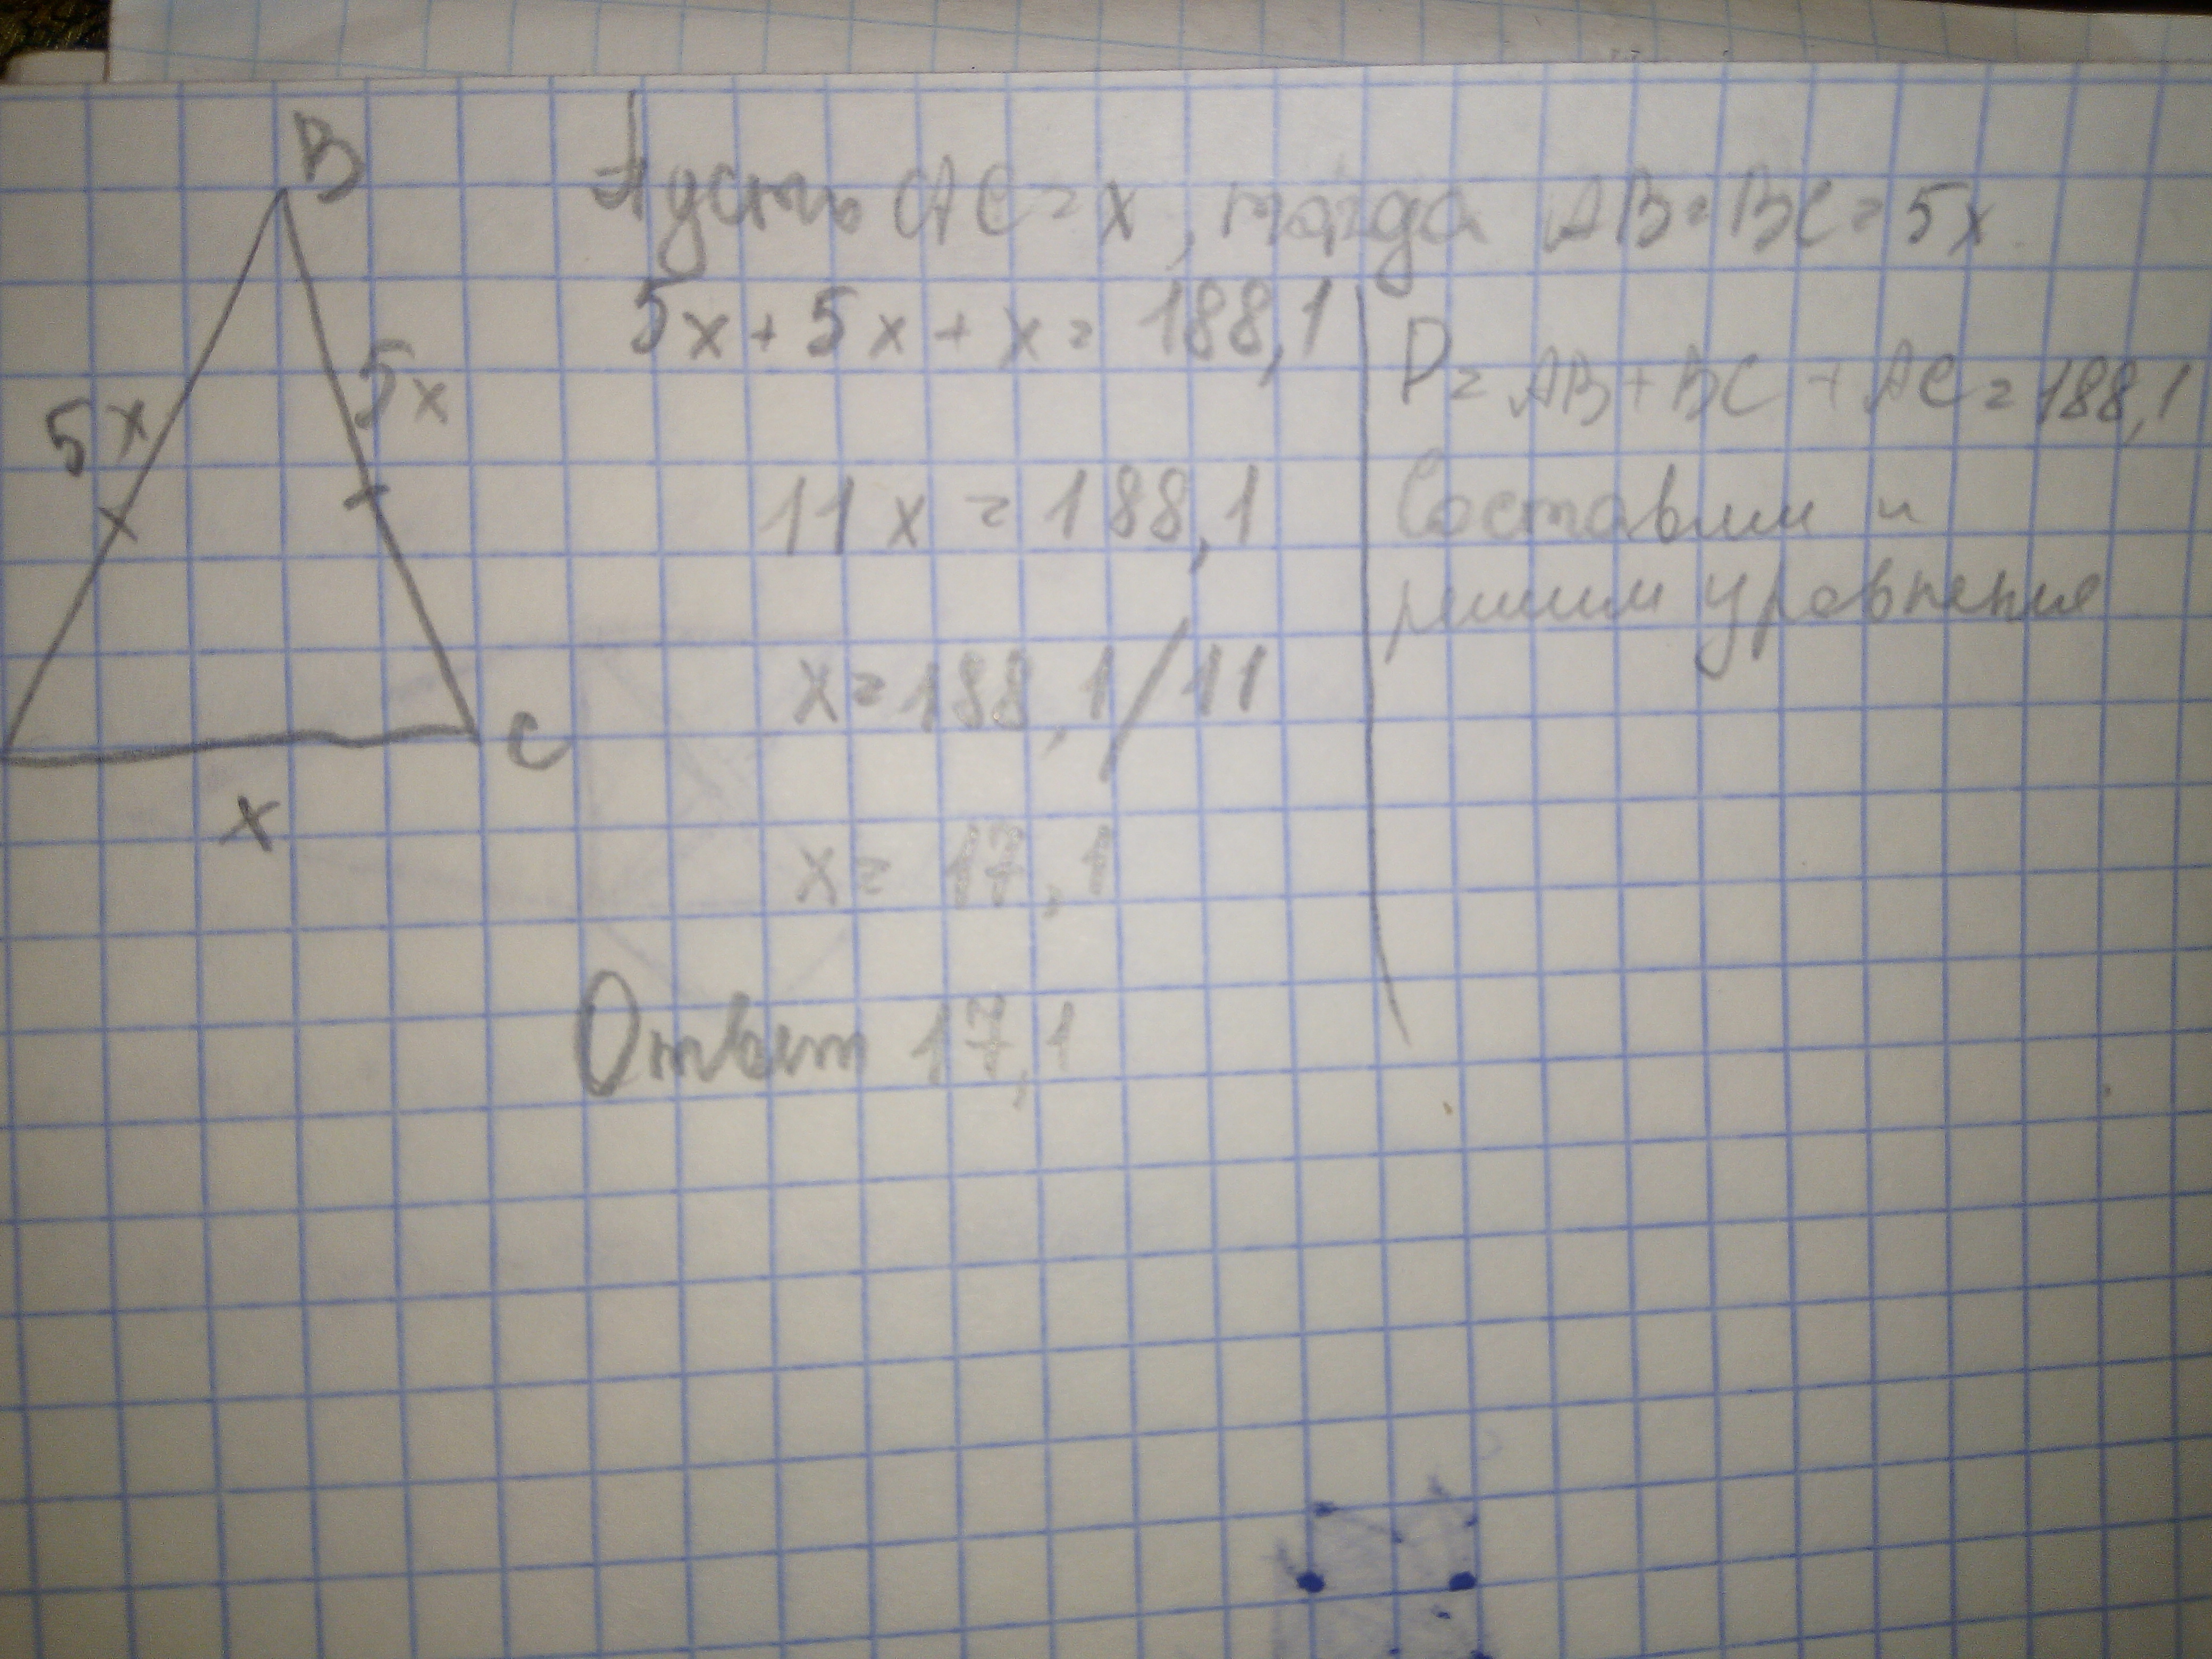 B
Пусть AC = x, тогда AB = BC = 5x
5x + 5x + x = 188,1
P = AB + BC + AC = 188,1
5x
5x
11x = 188,1
Составим и
решим уровнение
x = 188,1/11
C
x
x = 17,1
Ответ 17,1